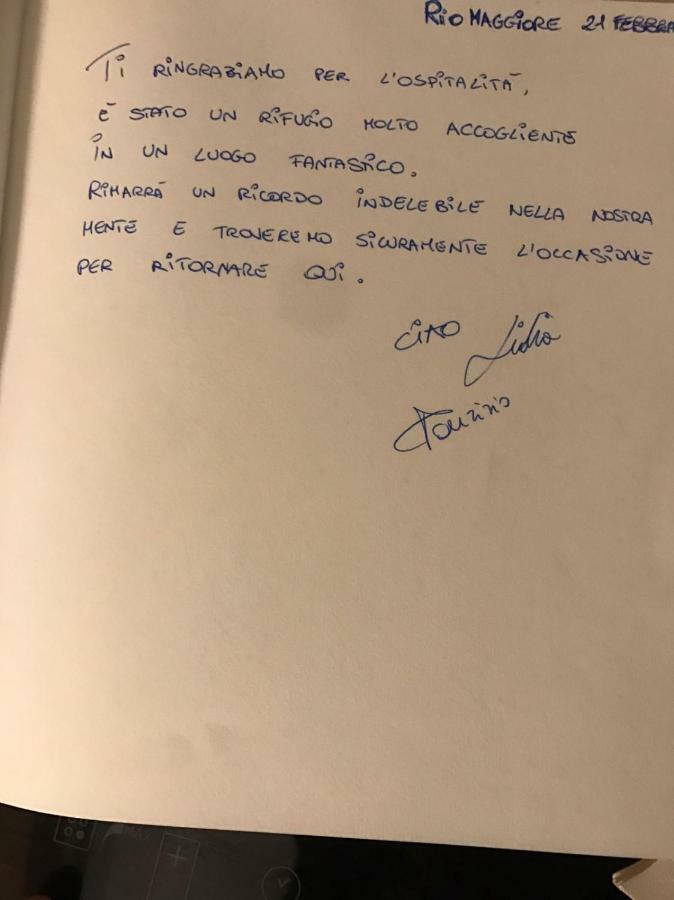 RIOMAGGIORE 21 FEBBRA
TI RINGRAZIAMO PER L'OSPITALITÀ,
È STATO UN RIFUGIO MOLTO ACCOGLIENTE
IN UN LUOGO FANTASTICO.
RIMARRÀ UN RICORDO INDELEBILE NELLA NOSTRA
MENTE E TROVEREMO SICURAMENTE L'OCCASIONE
PER RITORNARE QUI.
CIAO Lidia